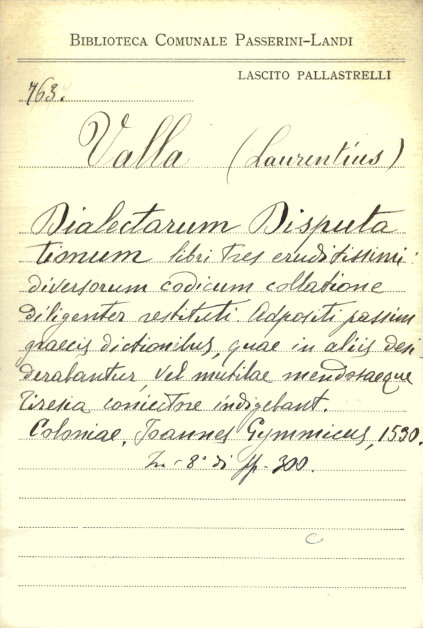 BIBLIOTECA COMUNALE PASSERINI-LANDI
LASCITO PALLASTRELLI
763.
Valla (Laurentius)
Dialectarum Disputa
tionum libri tres eruditissimi:
diversorum codicum collatione
diligenter restituti. Adpositi passim
graecis dictionibus, quae in aliis desi
derabantur, vel mutilae mendosaeque
Tiresia coniectore indigebant.
Coloniae, Joannes Gymnicus, 1530.
In-8° di pp. 300.
C